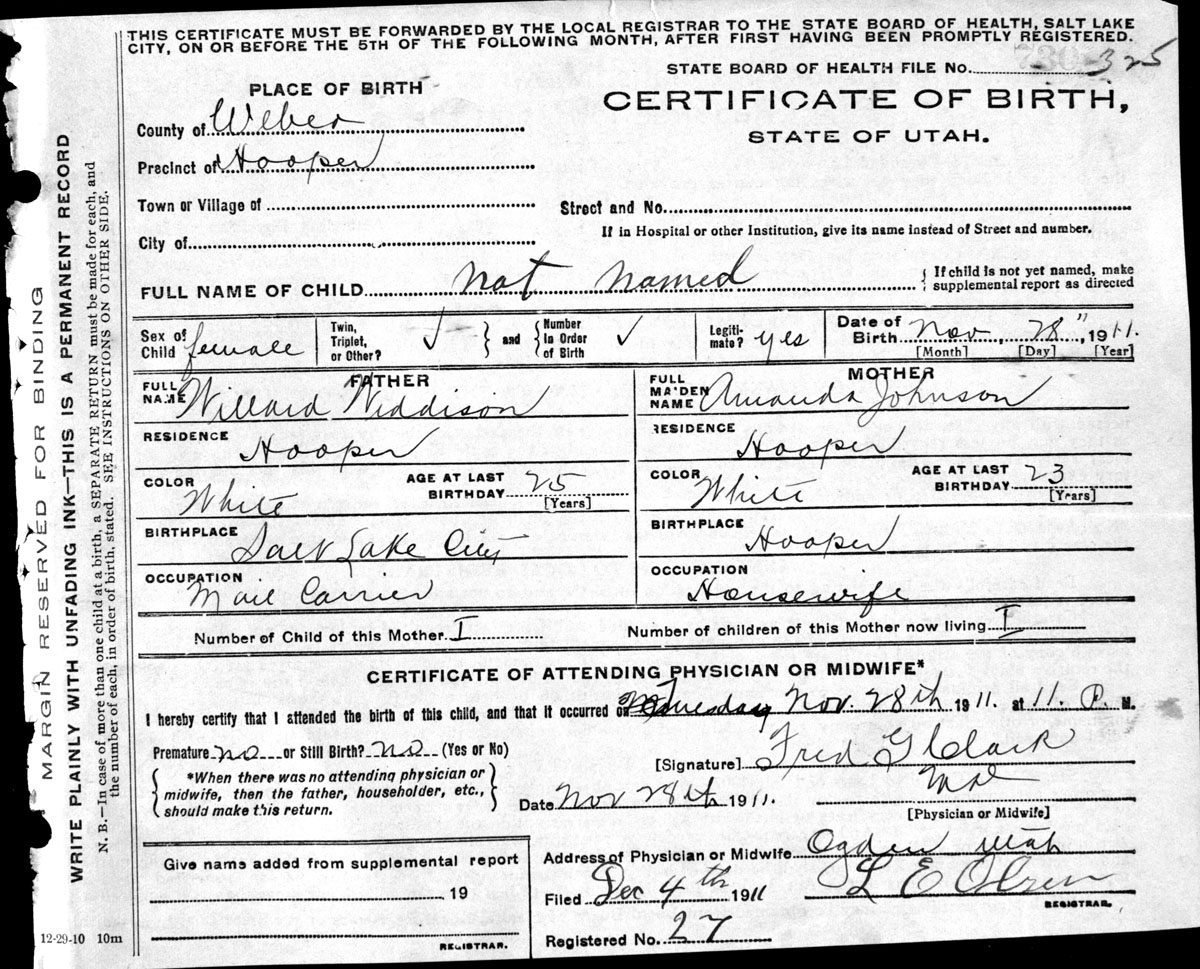 THIS CERTIFICATE MUST BE FORWARDED BY THE LOCAL REGISTRAR TO THE STATE BOARD OF HEALTH, SALT LAKE
CITY, ON OR BEFORE THE 5TH OF THE FOLLOWING MONTH, AFTER FIRST HAVING BEEN PROMPTLY REGISTERED.
STATE BOARD OF HEALTH FILE No. 325
PLACE OF BIRTH
CERTIFICATE OF BIRTH,
STATE OF UTAH.
County of Weber
Precinct of Hooper
Town or Village of
Street and No.
City of
If in Hospital or other Institution, give its name instead of Street and number.
FULL NAME OF CHILD not named { If child is not yet named, make
supplemental report as directed
Sex of Child female Twin, Triplet, or Other? ✓ } and { Number in Order of Birth ✓ Legiti-mate? yes Date of Birth Nov, 28", 1911.
[Month] [Day] [Year]
FATHER
FULL NAME Willard Widdison
RESIDENCE Hooper
COLOR White AGE AT LAST BIRTHDAY 25
[Years]
BIRTHPLACE Salt Lake City
OCCUPATION Mail Carrier
MOTHER
FULL MAIDEN NAME Amanda Johnson
RESIDENCE Hooper
COLOR White AGE AT LAST BIRTHDAY 23
[Years]
BIRTHPLACE Hooper
OCCUPATION Housewife
Number of Child of this Mother I Number of children of this Mother now living I
CERTIFICATE OF ATTENDING PHYSICIAN OR MIDWIFE*
I hereby certify that I attended the birth of this child, and that it occurred on Nov. 28th 1911. at 11. P. M.
Premature no or Still Birth? No (Yes or No)
[Signature] Fred G Clark
*When there was no attending physician or
midwife, then the father, householder, etc.,
should make this return.
Date Nov 28th 1911.
MD
[Physician or Midwife]
Give name added from supplemental report
19
REGISTRAR.
Address of Physician or Midwife Ogden Utah
Filed Dec 4th 1911 L E Olsen
REGISTRAR.
Registered No. 27
12-29-10 10m
MARGIN RESERVED FOR BINDING
WRITE PLAINLY WITH UNFADING INK—THIS IS A PERMANENT RECORD
N. B.—In case of more than one child at a birth, a SEPARATE RETURN must be made for each, and
the number of each, in order of birth, stated. SEE INSTRUCTIONS ON OTHER SIDE.